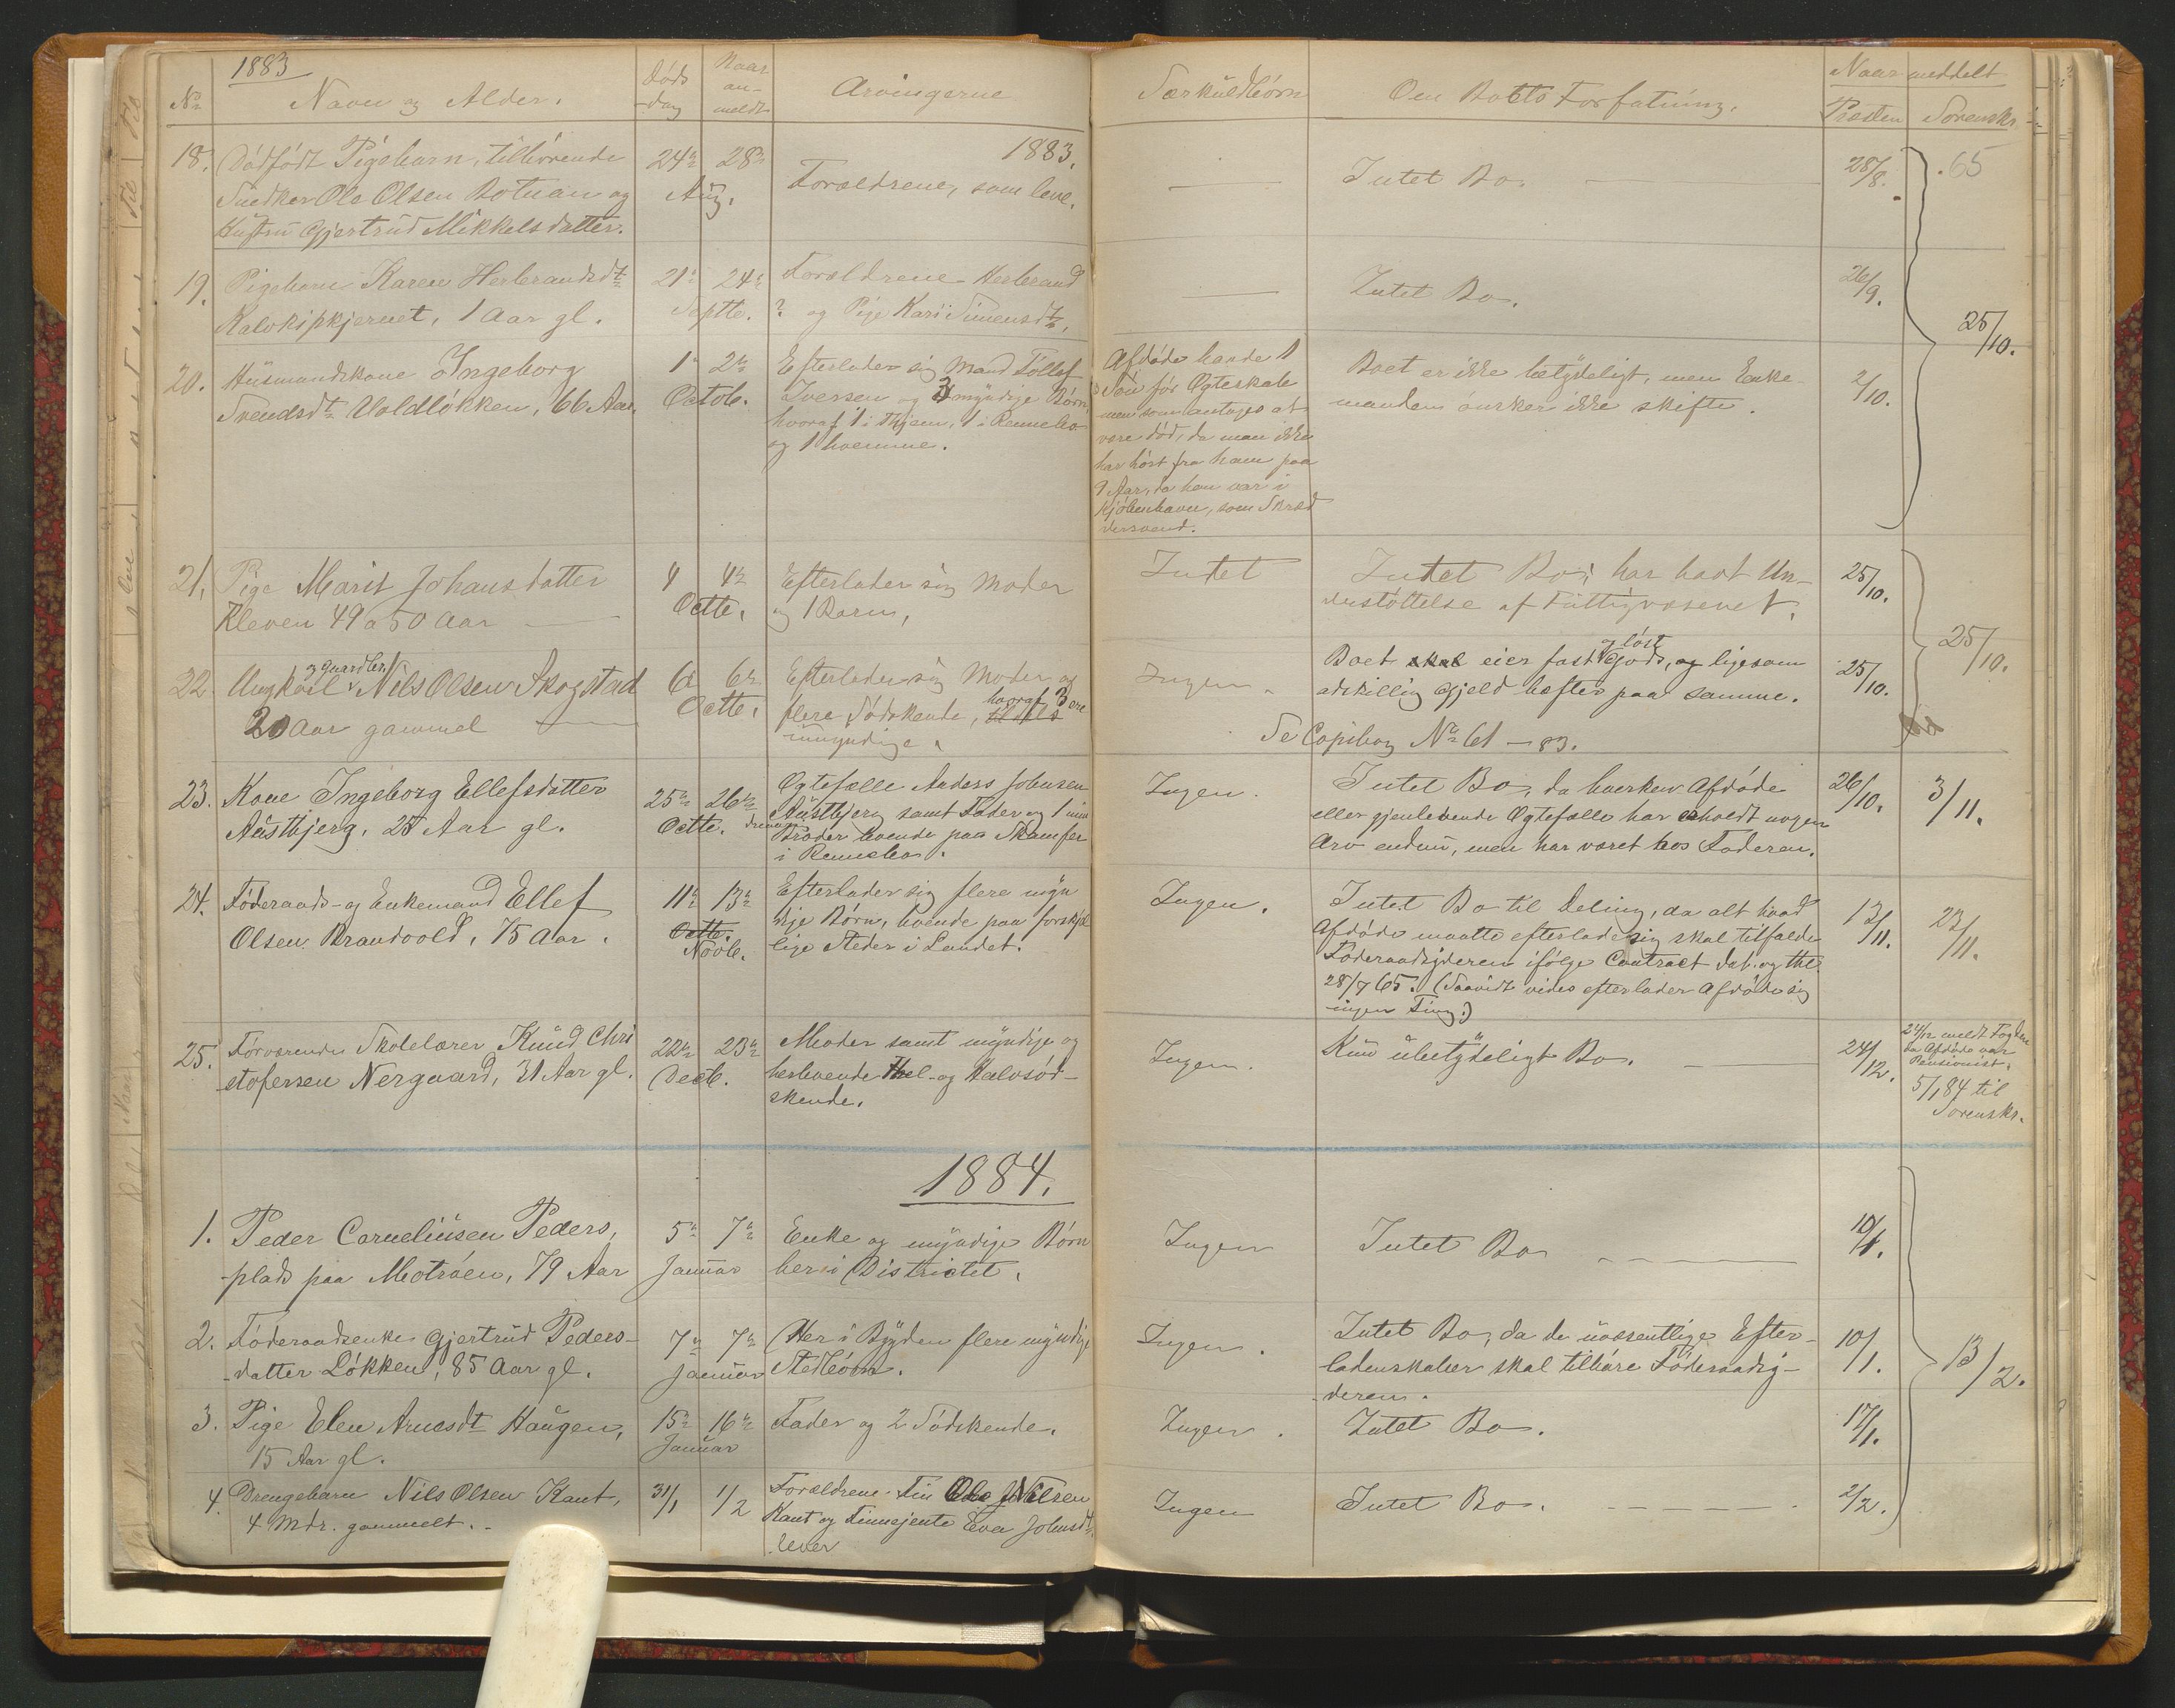 1883
No
Navn og Alder.
Døds
dag
Naar
an-
meldt
Arvingerne
Særkuldbørn
Om Boets Forfatning.
Naar meddelt
Præsten
Sorenskr.
1883.
18. Dødfødt Pigebarn, tilhørende
Snedker Ole Olsen Botnan og
Hustru Gjertrud Mikkelsdatter.
24de 28de
Aug.
Forældrene, som leve.
Intet Bo.
28/8.
65
19. Pigebarn Karen Herbrandsdt
1 Aar gl.
21de 24de
Septb.
Forældrene Herbrand
? og Pige Kari Simensdt.
Intet Bo.
26/9.
25/10.
20. Husmandskone Ingeborg
Svendsdt Voldløkken, 66 Aar.
1 2de
Octob.
Efterlader sig Mand Tollef
Iversen og 3 myndige Børn,
hvoraf 1 i Thjem, 1 i Rennebo
og 1 hjemme.
Afdøde havde 1
Søn før Ægteskab
men som antages at
være død, da man ikke
har hørt fra ham paa
9 Aar, da han var i
Kjøbenhavn, som Skræd
dersvend.
Boet er ikke betydeligt, men Enke-
manden ønsker ikke skifte.
2/10.
21. Pige Marit Johansdatter
Kleven 49 a 50 Aar
4 4de
Octb.
Efterlader sig Moder
og 1 Barn,
Intet
Intet Bo; har havt Un-
derstøttelse af Fattigvæsenet.
25/10.
25/10.
22. Ungkarl og Gaardbr. Nils Olsen Skogstad
20 Aar gammel
6te 6te
Octb.
Efterlader sig Moder og
flere Sødskende, hvoraf 3 ere
umyndige.
Ingen.
Boet skal eier fast og løst Gods, og ligesom
adskillig Gjeld hæfter paa samme.
25/10.
Se Copibog No 61 - 83.
23. Kone Ingeborg Ellefsdatter
Austbjerg, 25 Aar gl.
25de 26de
Octb.
Ægtefælle Anders Johnsen
Austbjerg samt Fader og 1
Broder boende paa Skamfer
i Rennebo.
Ingen.
Intet Bo, da hverken Afdøde
eller gjenlevende Ægtefælle har erholdt nogen
Arv endnu, men har været hos Faderen.
26/10.
3/11.
24. Føderaads- og Enkemand Ellef
Olsen Brandvold, 75 Aar.
11te 13de
Octb.
Novb.
Efterlader sig flere myn
dige Børn, boende paa forskjel
lige Steder i Landet.
Ingen.
Intet Bo til Deling, da alt hvad
Afdøde maatte efterlade sig skal tilfalde
Føderaadsyderen ifølge Contract dat. og thl.
28/7 65. (Saavidt vides efterlader Afdøde sig
ingen Ting.)
13/11.
23/11.
25. Forværende Skolelærer Knud Chri
stofersen Nergaard, 31 Aar gl.
22de 23de
Decb.
Moder samt myndige og
herboende Hel- og Halvsød-
skende.
Ingen.
Kun ubetydeligt Bo.
24/12.
24/12 meldt Fogden
da Afdøde var
Pensionist.
5/1 84 til
Sorenskr.
1884.
1. Peder Corneliusen Peders,
-plads paa Motrøen, 79 Aar
5te 7de
Januar
Enke og myndige Børn
her i Districtet.
Ingen
Intet Bo
10/1.
2. Føderaadsenke Gjertrud Peders-
datter Løkken, 85 Aar gl.
7de 7de
Januar
Her i Bygden flere myndige
Stedbørn.
Ingen.
Intet Bo, da de uvæsentlige Efter-
ladenskaber skal tilhøre Føderaadsy-
deren.
10/1.
13/2.
3. Pige Elen Arnesdt Haugen,
15 Aar gl.
15de 16de
Januar
Fader og 2 Sødskende.
Ingen.
Intet Bo.
17/1.
4. Drengebarn Nils Olsen Kant,
4 Mdr. gammelt.
31/1 1/2
Forældrene Fin Ole Nilsen
Kant og Finnejente Eva Johnsdt.
lever
Ingen
Intet Bo.
2/2.